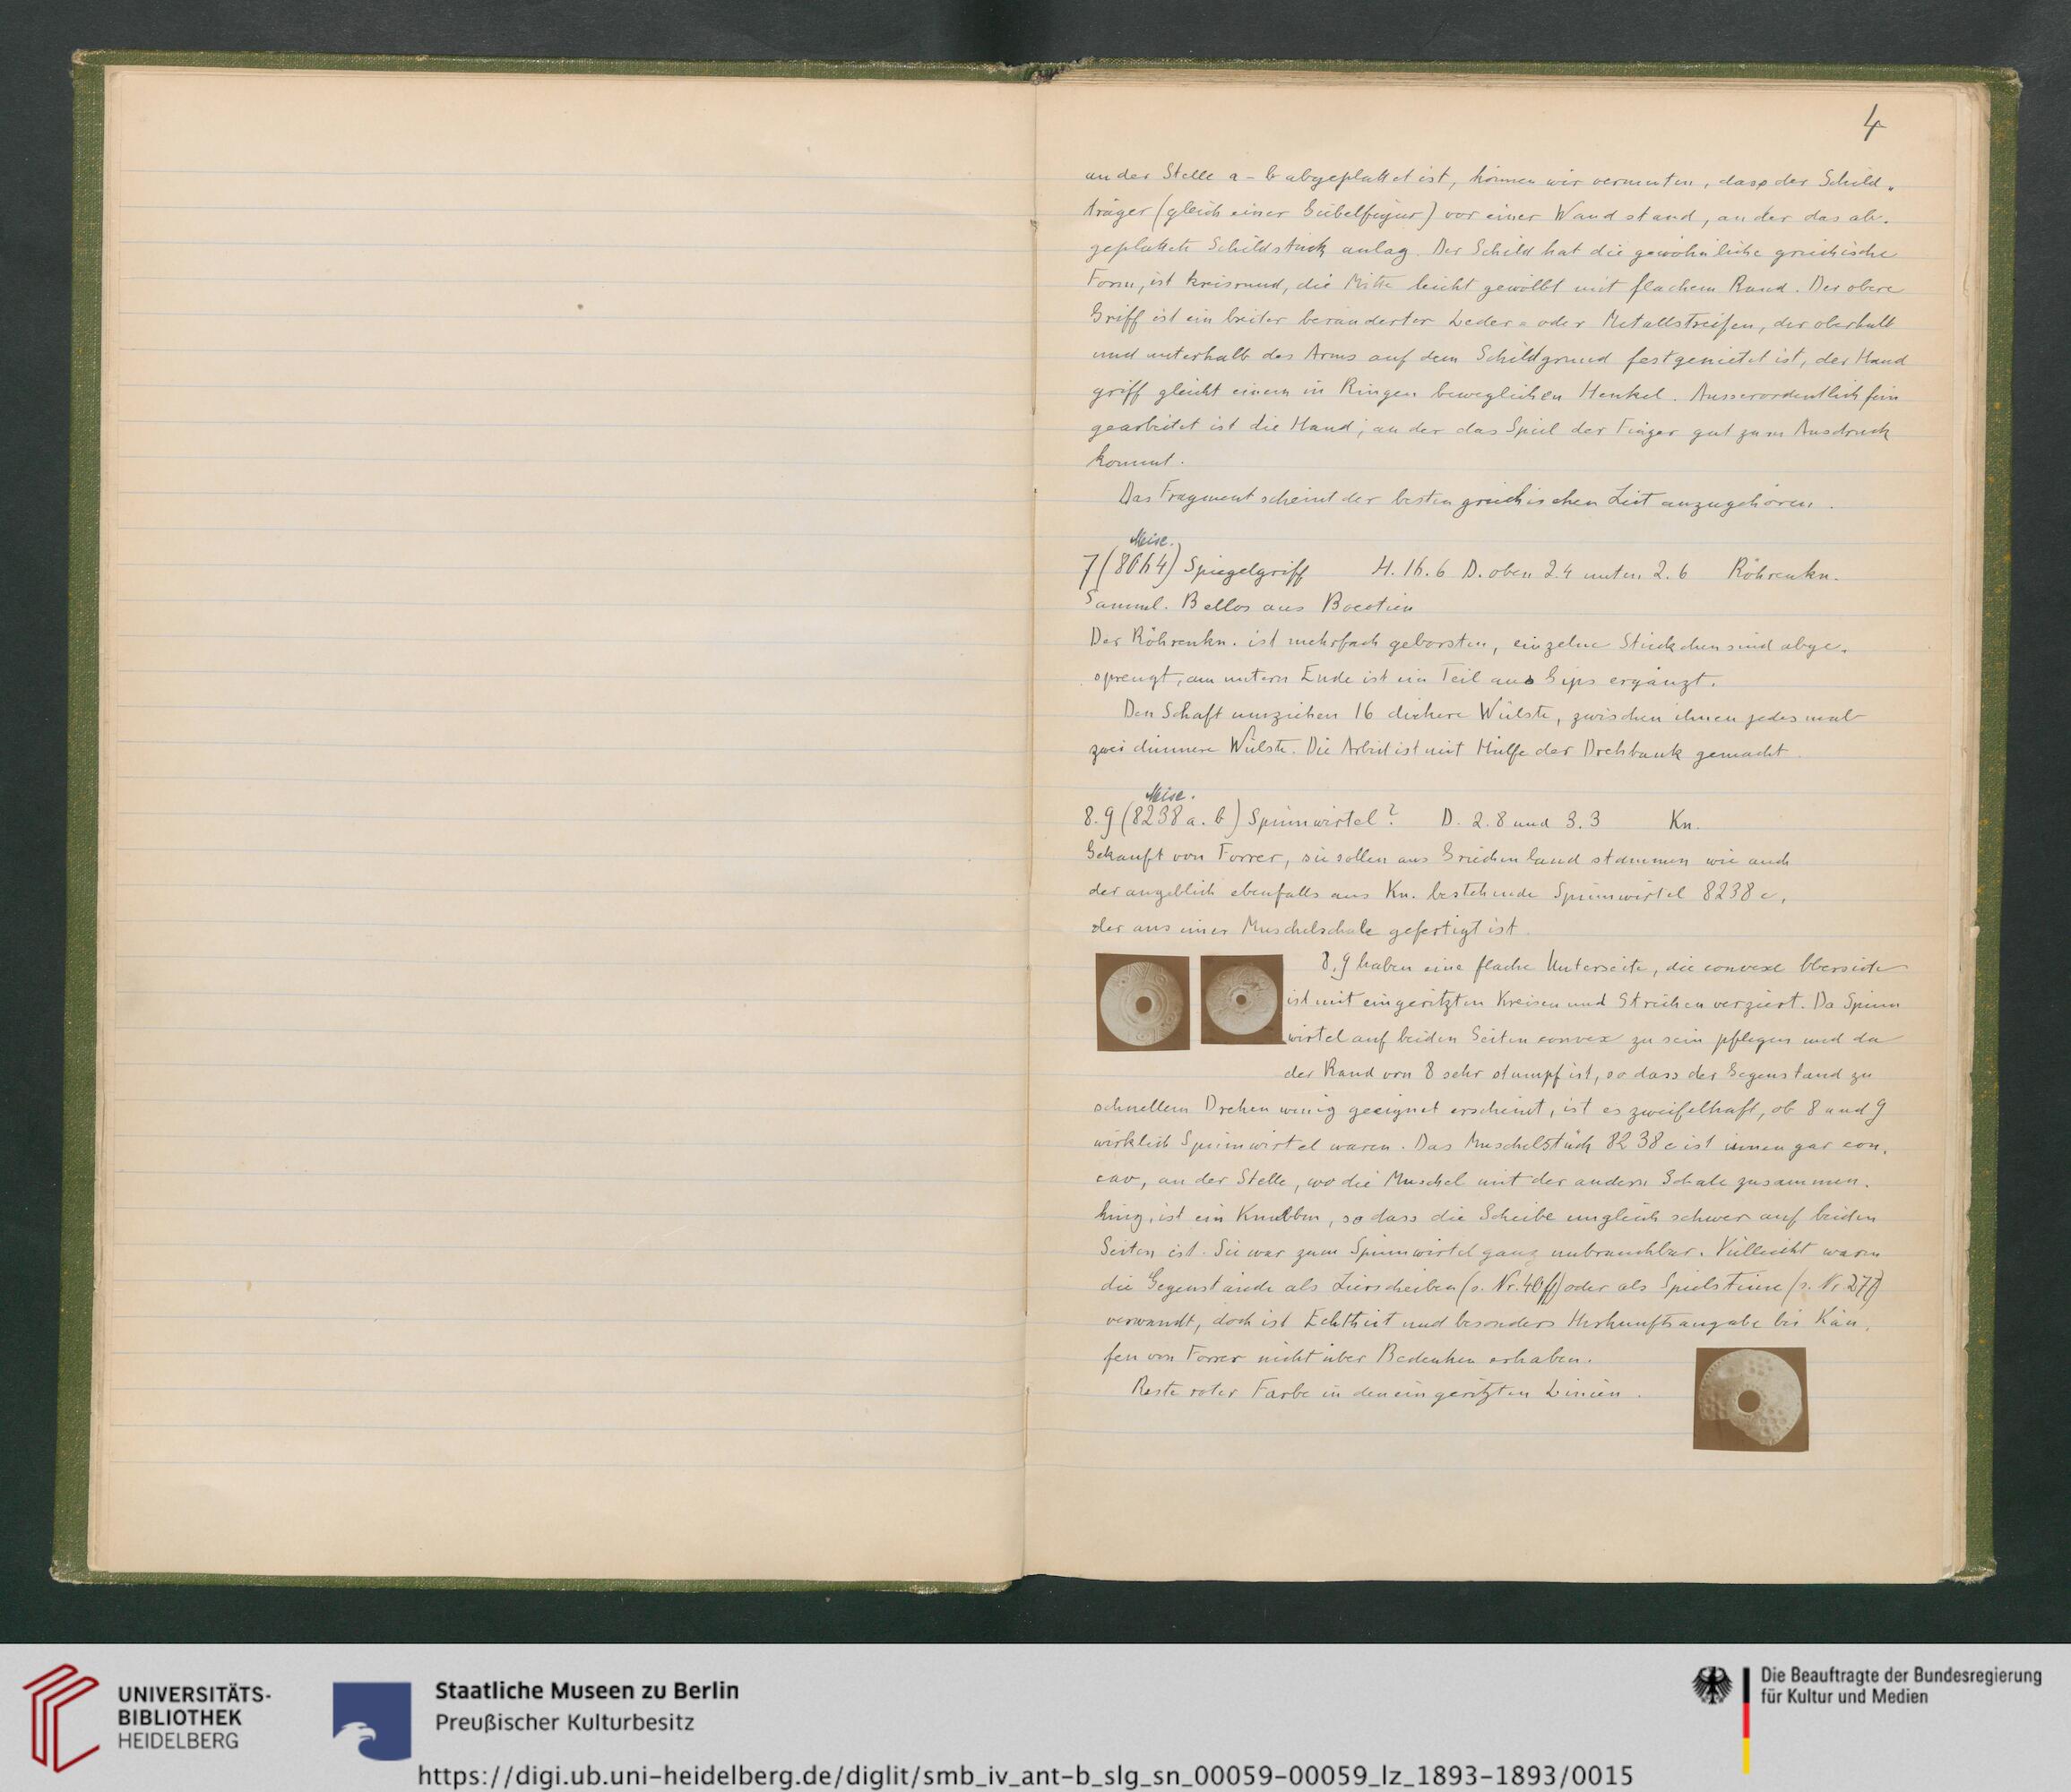 4
an der Stelle a-b abgeplattet ist, können wir vermuten, dass der Schild-
träger (gleich einer Giebelfigur) vor einer Wand stand, an der das ab-
geplattete Schildstück anlag. Der Schild hat die gewöhnliche griechische
Form, ist kreisrund, die Mitte leicht gewölbt mit flachem Rand. Der obere
Griff ist ein breiter beränderter Leder- oder Metallstreifen, der oberhalb
und unterhalb des Arms auf dem Schildgrund festgenietet ist, der Hand
griff gleicht einem in Ringen beweglichen Henkel. Ausserordentlich fein
gearbeitet ist die Hand, an der das Spiel der Finger gut zum Ausdruck
kommt.
Das Fragment scheint der besten griechischen Zeit anzugehören.
Misc.
7 (8064) Spiegelgriff H. 16.6 D. oben 2.4 unten 2.6 Röhrenkn.
Samml. Bellos aus Boeotien
Der Röhrenkn. ist mehrfach geborsten, einzelne Stückchen sind abge-
sprengt, am untern Ende ist ein Teil aus Gips ergänzt.
Den Schaft umziehen 16 dickere Wülste, zwischen ihnen jedesmal
zwei dünnere Wülste. Die Arbeit ist mit Hülfe der Drehbank gemacht.
Misc.
8.9 (8238 a.b) Spinnwirtel? D. 2.8 und 3.3 Kn.
Gekauft von Forrer, sie sollen aus Griechenland stammen wie auch
der angeblich ebenfalls aus Kn. bestehende Spinnwirtel 8238 c,
der aus einer Muschelschale gefertigt ist.
8.9 haben eine flache Unterseite, die convexe Oberseite
ist mit eingeritzten Kreisen und Strichen verziert. Da Spinn
wirtel auf beiden Seiten convex zu sein pflegen und da
der Rand von 8 sehr stumpf ist, so dass der Gegenstand zu
schnellem Drehen wenig geeignet erscheint, ist es zweifelhaft, ob 8 und 9
wirklich Spinnwirtel waren. Das Muschelstück 8238 c ist innen gar con-
cav, an der Stelle, wo die Muschel mit der andern Schale zusammen-
hing, ist ein Knubben, so dass die Scheibe ungleich schwer auf beiden
Seiten ist. Sie war zum Spinnwirtel ganz unbrauchbar. Vielleicht waren
die Gegenstände als Zierscheiben (s. Nr. 40ff) oder als Spielsteine (s. Nr. 277)
verwandt, doch ist Echtheit und besonders Herkunftsangabe bei Käu-
fen von Forrer nicht über Bedenken erhaben.
Reste roter Farbe in den eingeritzten Linien.
UNIVERSITÄTS-
BIBLIOTHEK
HEIDELBERG
Staatliche Museen zu Berlin
Preußischer Kulturbesitz
Die Beauftragte der Bundesregierung
für Kultur und Medien
https://digi.ub.uni-heidelberg.de/diglit/smb_iv_ant-b_slg_sn_00059-00059_lz_1893-1893/0015